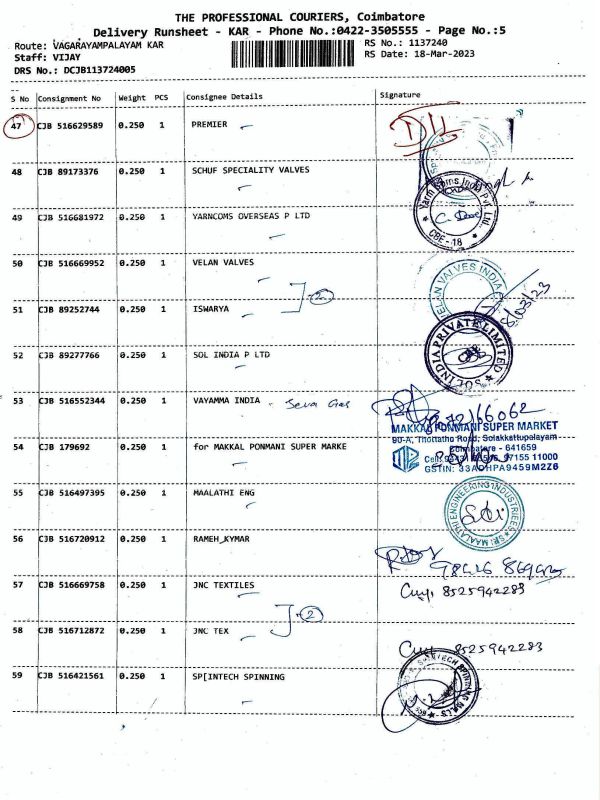 THE PROFESSIONAL COURIERS, Coimbatore
Delivery Runsheet - KAR - Phone No.:0422-3505555 - Page No.:5
Route: VAGARAYAMPALAYAM KAR RS No.: 1137240
Staff: VIJAY RS Date: 18-Mar-2023
DRS No.: DCJB113724005
S No Consignment No Weight PCS Consignee Details Signature
47 CJB 516629589 0.250 1 PREMIER
48 CJB 89173376 0.250 1 SCHUF SPECIALITY VALVES
49 CJB 516681972 0.250 1 YARNCOMS OVERSEAS P LTD
CBE - 18
50 CJB 516669952 0.250 1 VELAN VALVES
VELAN VALVES INDIA
2
51 CJB 89252744 0.250 1 ISWARYA
8/03/23
52 CJB 89277766 0.250 1 SOL INDIA P LTD
SOL INDIA PRIVATE LIMITED
53 CJB 516552344 0.250 1 VAYAMMA INDIA
MAKKAL PONMANI SUPER MARKET
90-A, Thottathu Road, Solakkattupalayam
Coimbatore - 641659
54 CJB 179692 0.250 1 for MAKKAL PONMANI SUPER MARKE
97155 11000
GSTIN: 33ADHPA9459M2Z6
55 CJB 516497395 0.250 1 MAALATHI ENG
SRI MAALATHI ENGINEERING INDUSTRIES
56 CJB 516720912 0.250 1 RAMEH_KYMAR
57 CJB 516669758 0.250 1 JNC TEXTILES
8525942283
2
58 CJB 516712872 0.250 1 JNC TEX
8525942283
59 CJB 516421561 0.250 1 SP[INTECH SPINNING